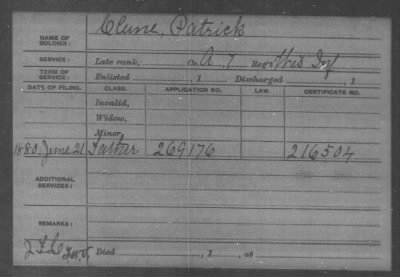 NAME OF SOLDIER: Clune, Patrick
SERVICE: Late rank, Co. A. 7 Reg't Wis Inf
TERM OF SERVICE: Enlisted , 1 Discharged , 1
DATE OF FILING. CLASS. APPLICATION NO. LAW. CERTIFICATE NO.
Invalid,
Widow,
Minor,
1880 June 21 Father 269176 216504
ADDITIONAL SERVICES:
REMARKS:
Died , 1 , at